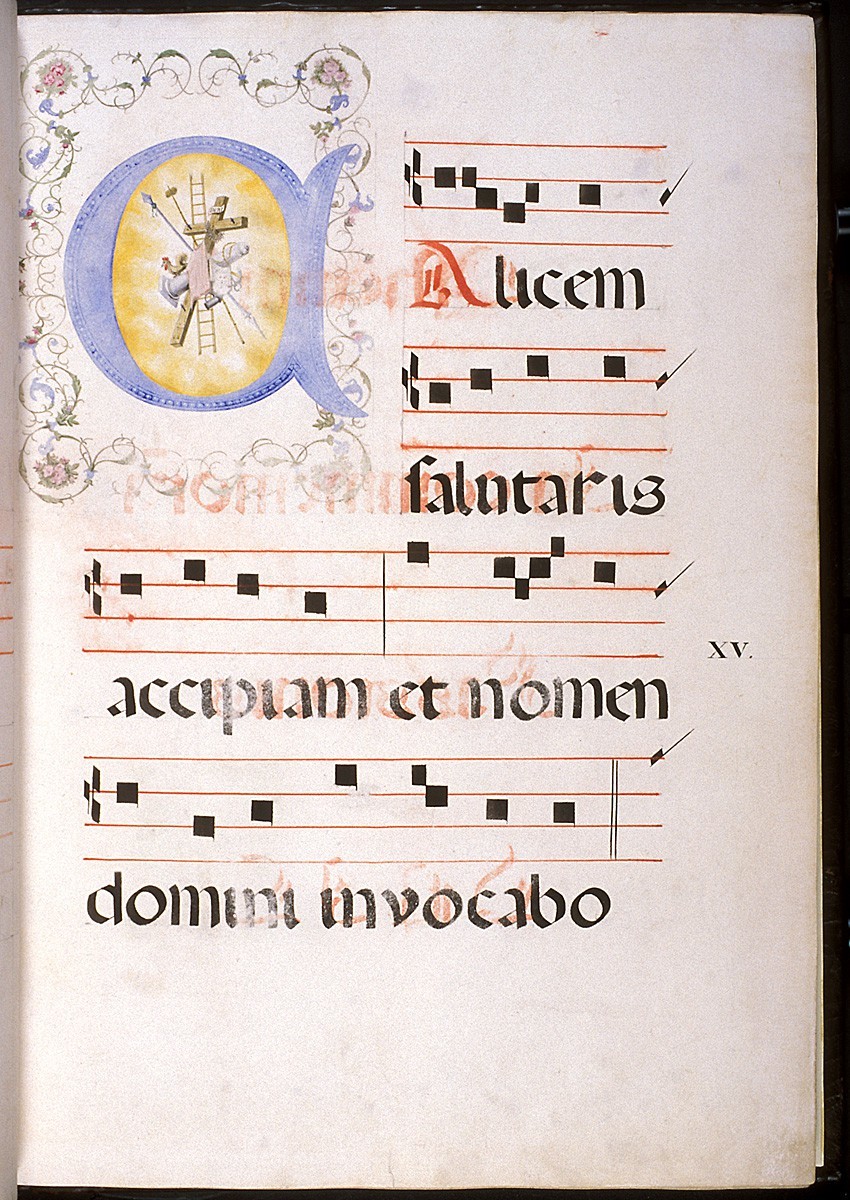 CAlicem
salutaris
accipiam et nomen
XV.
domini invocabo